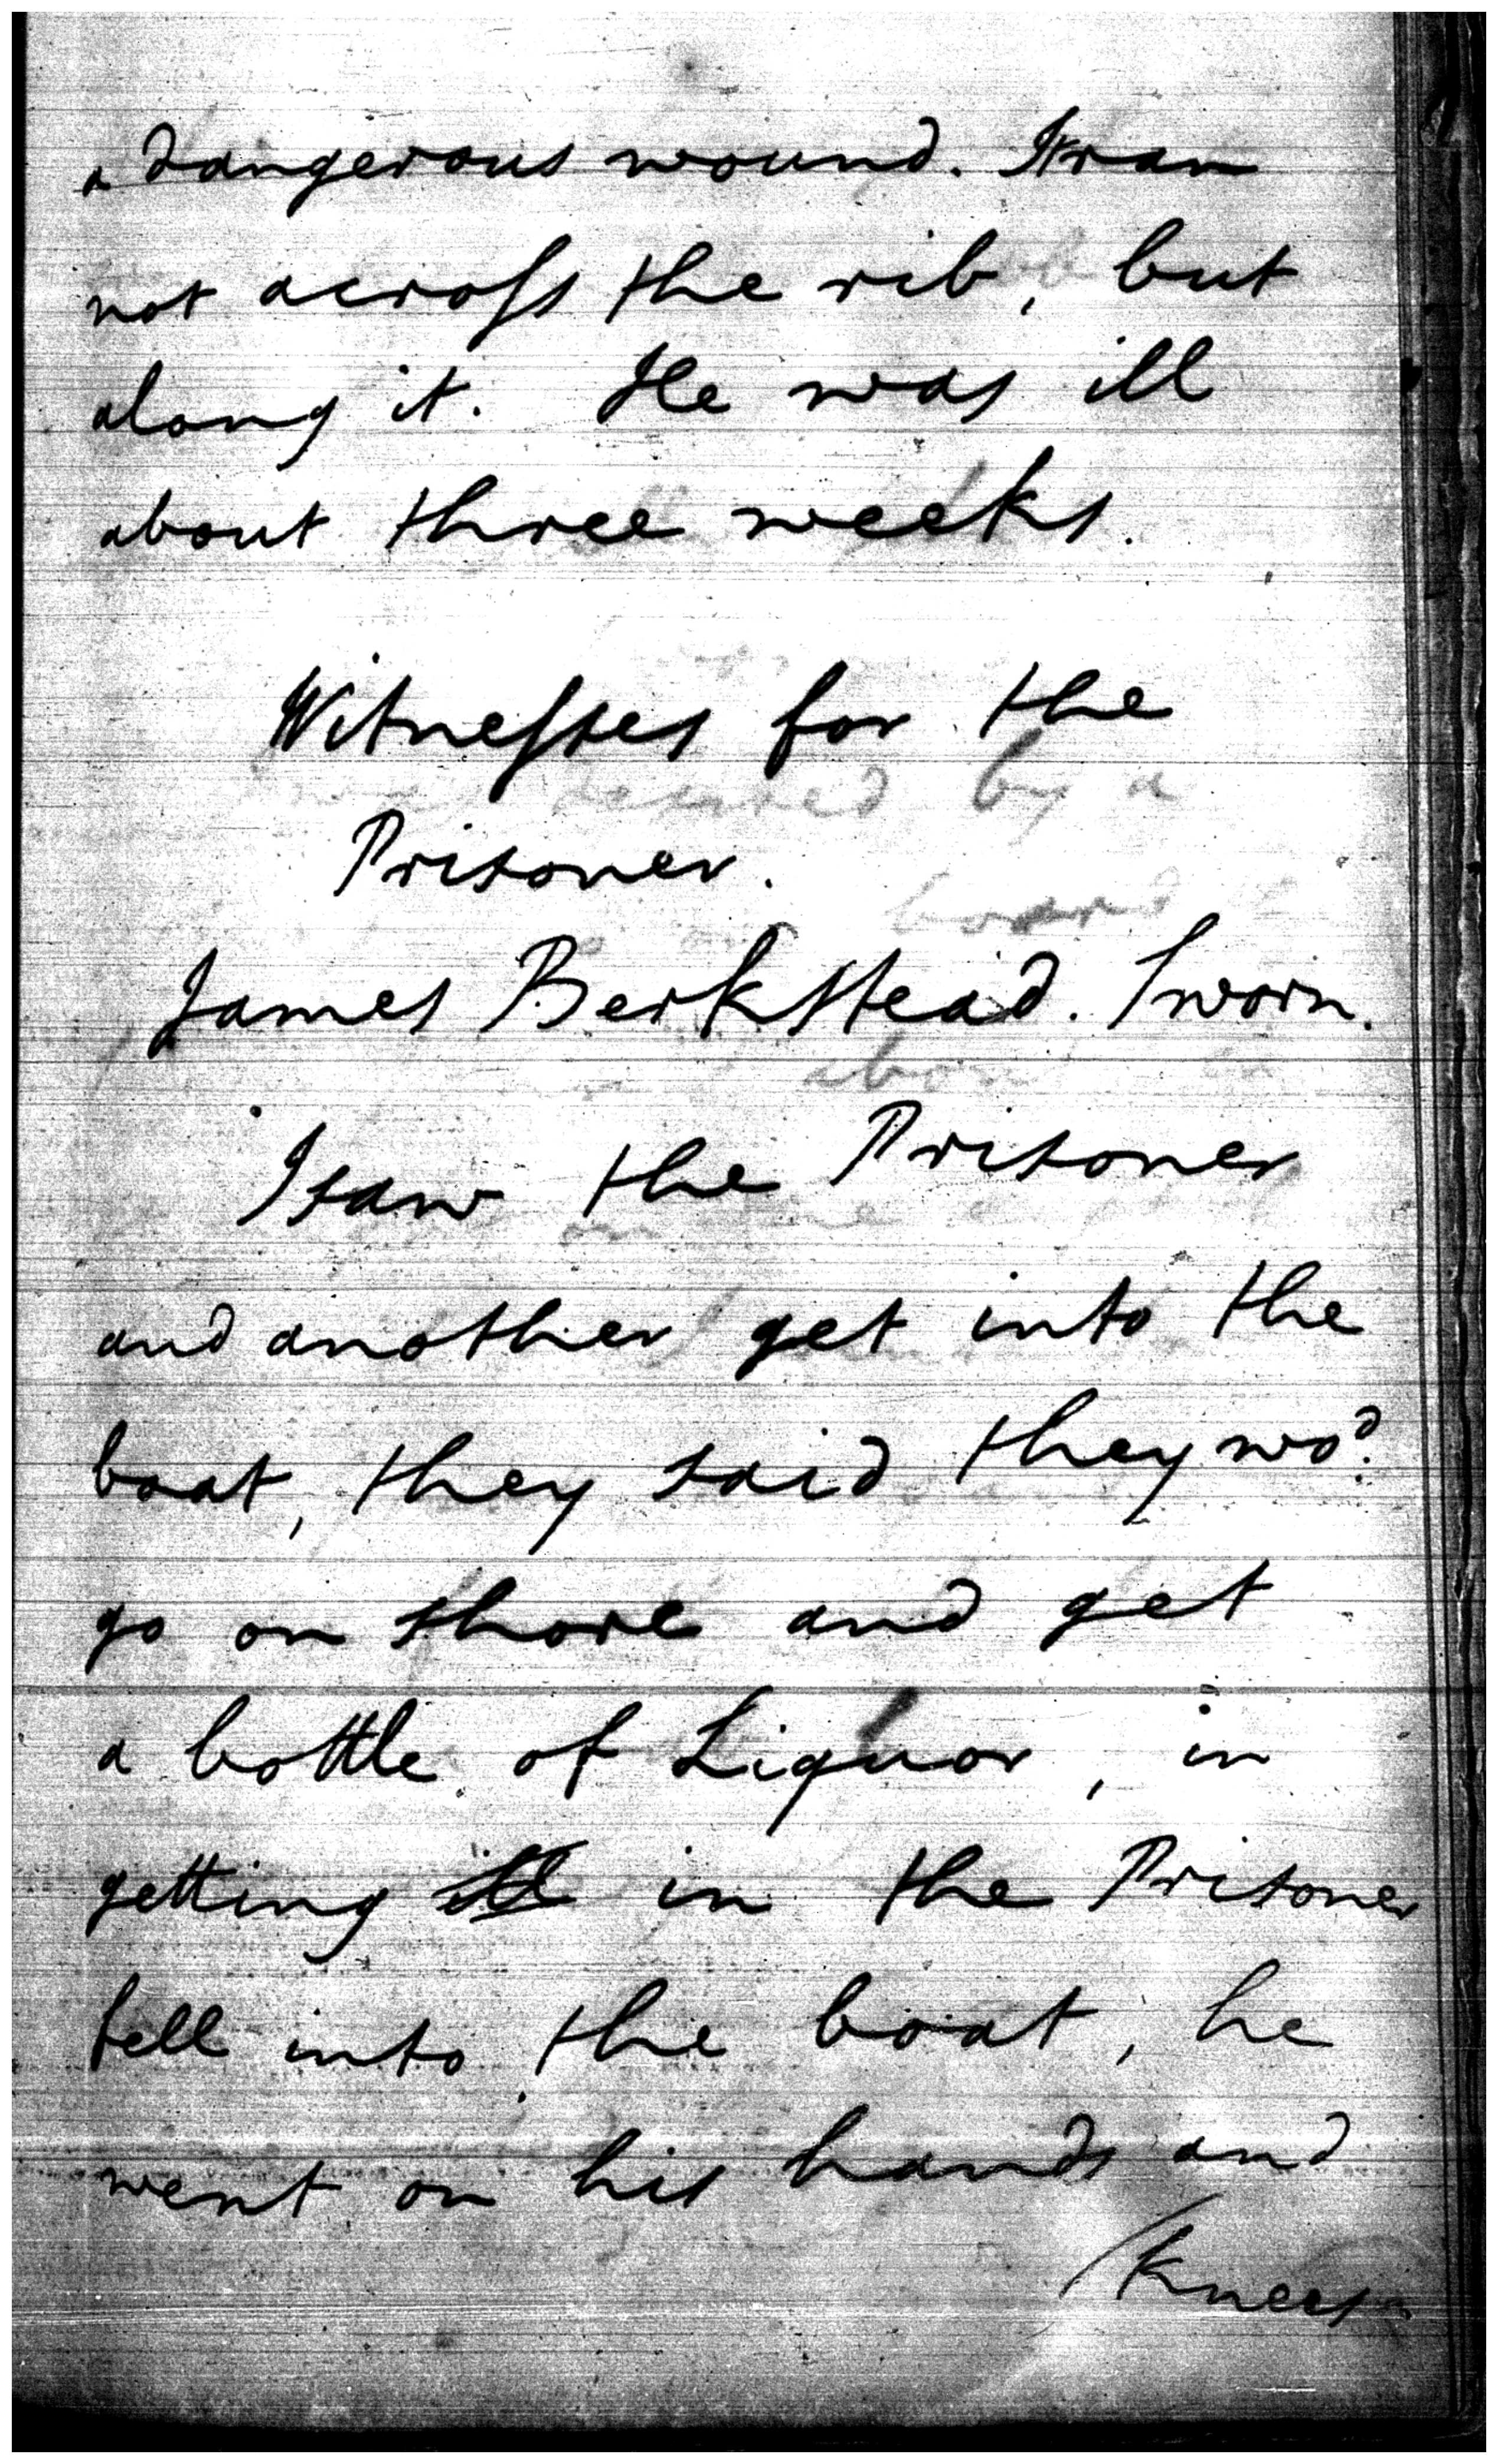 a dangerous wound. It ran
not across the rib, but
along it. He was ill
about three weeks.
Witnesses for the
Prisoner.
James Berkstead. Sworn.
I saw the Prisoner
and another get into the
boat, they said they wod.
go on shore and get
a bottle of Liquor, in
getting in the Prisoner
fell into the boat, he
went on his hands and
/knees